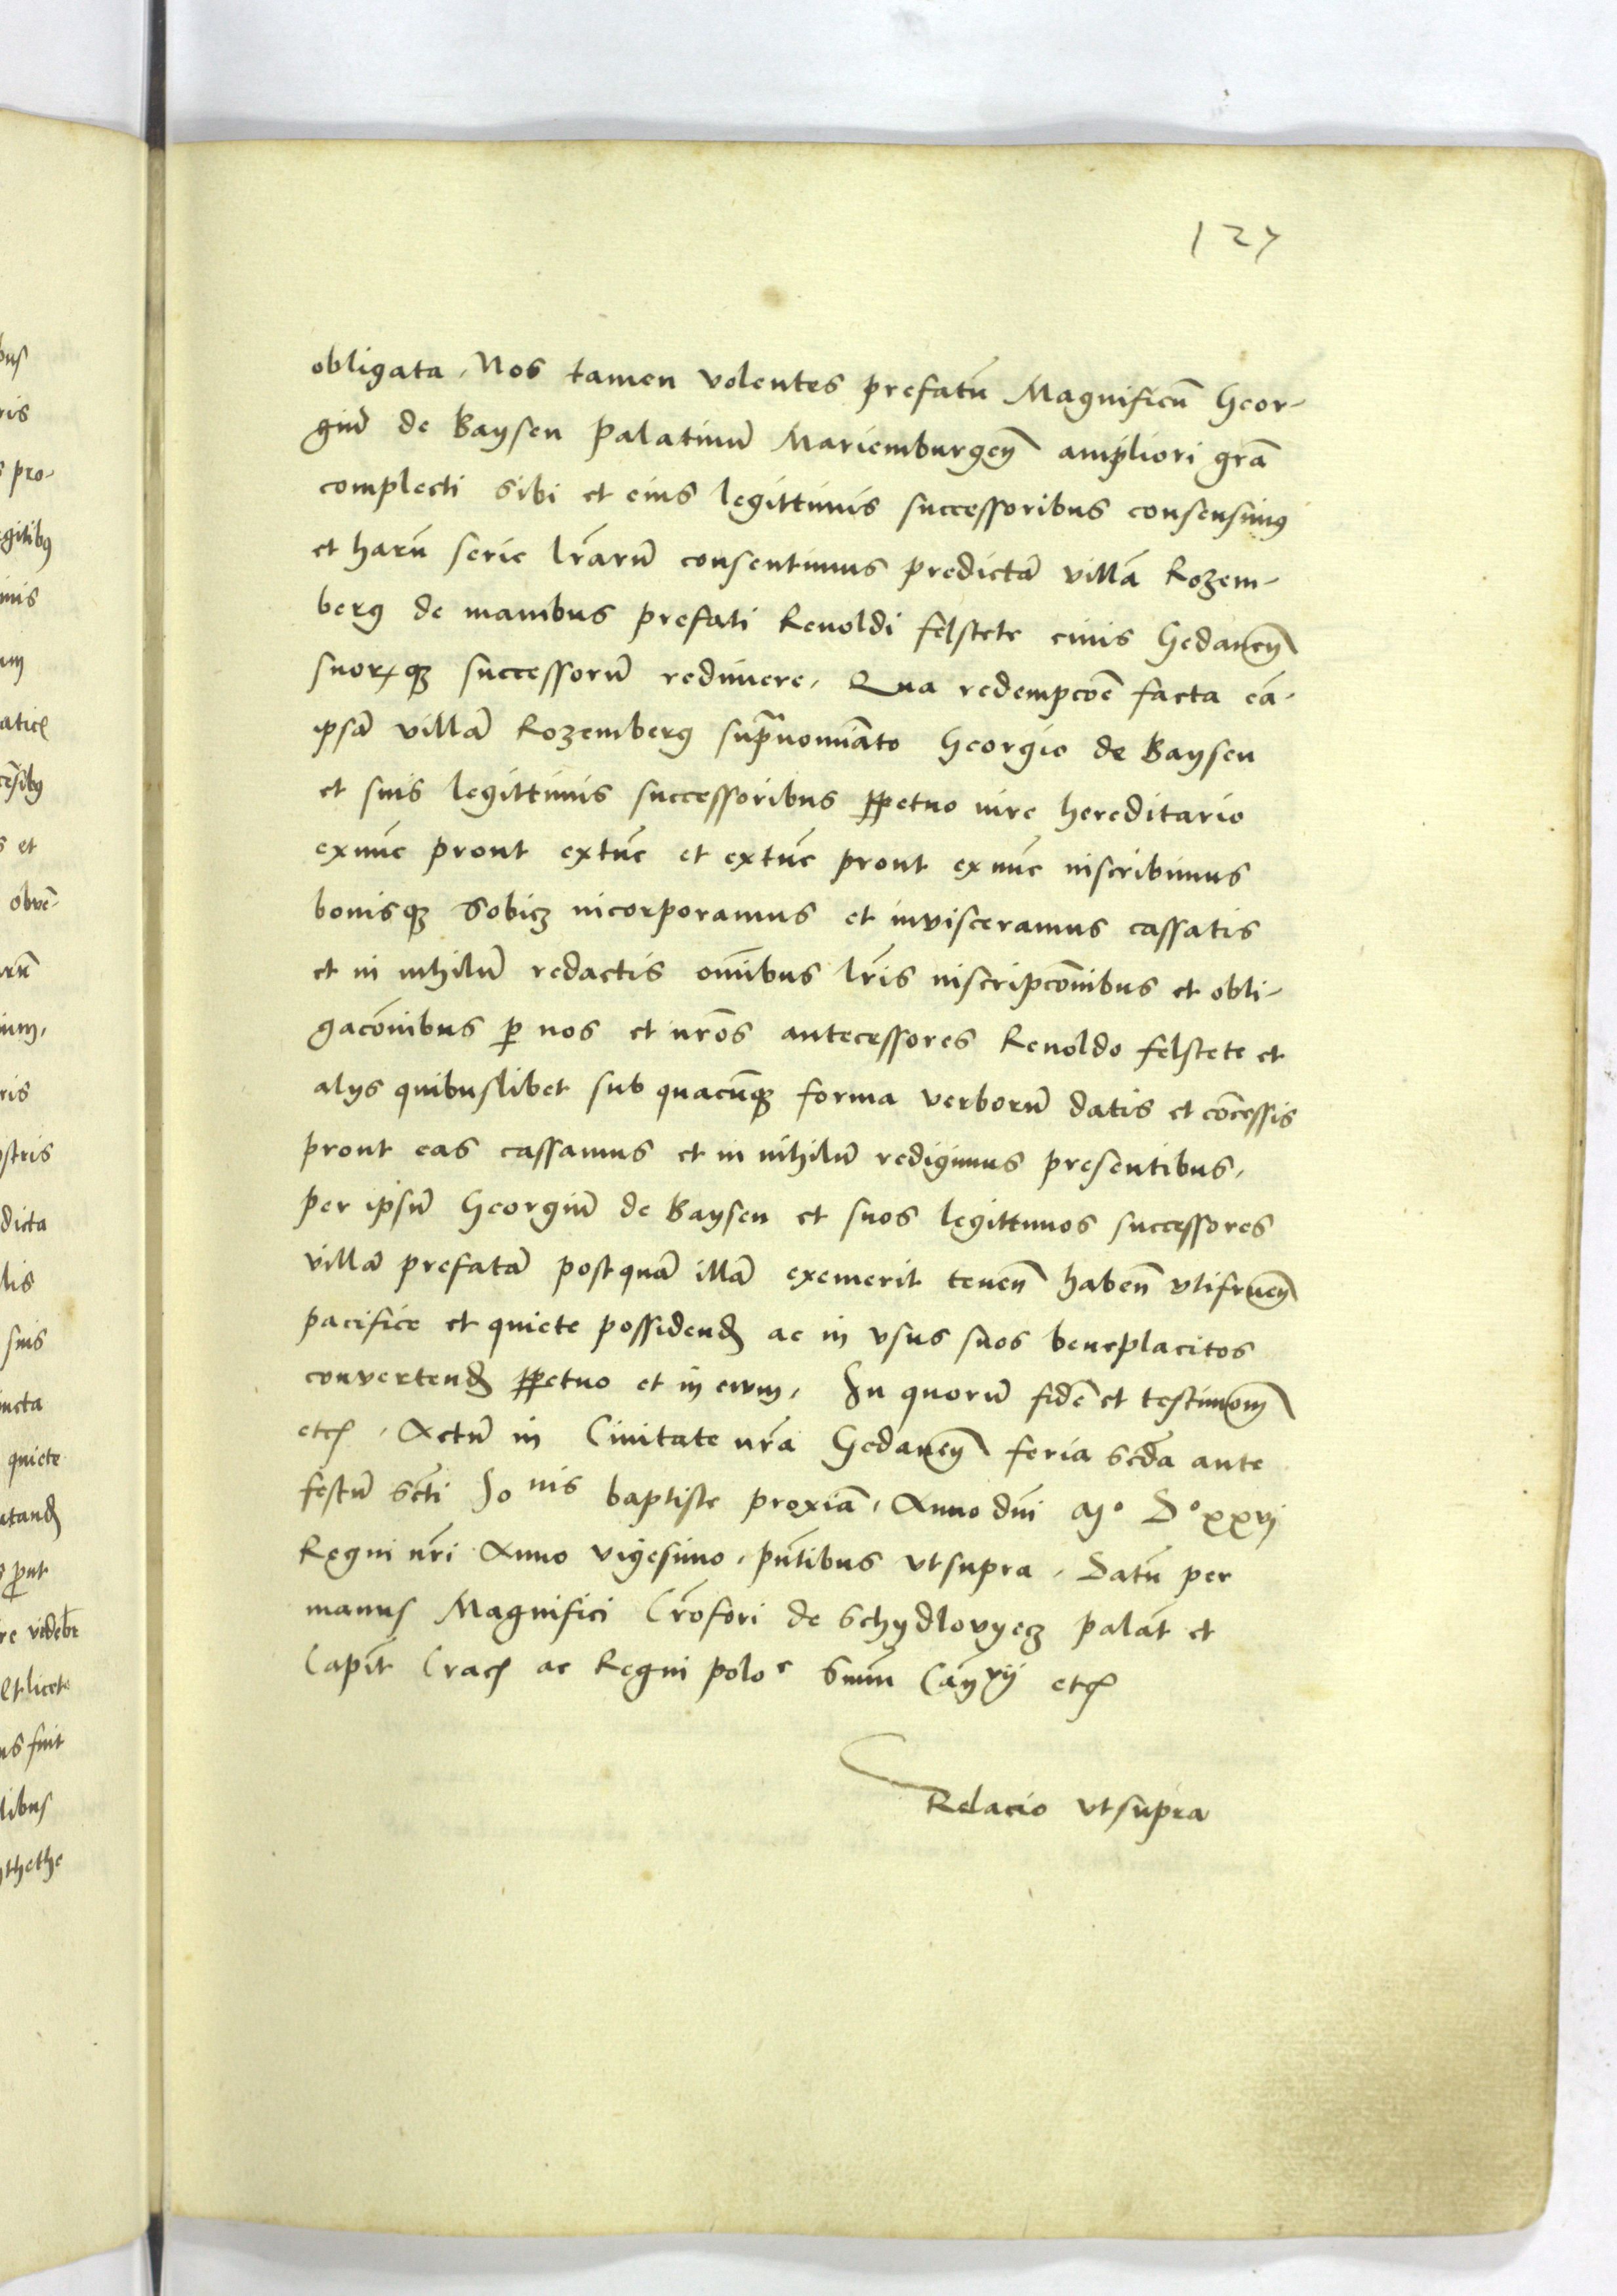 127
obligata, Nos tamen volentes prefatū Magnificū Geor-
giū de Baysen Palatinū Mariemburgeñ ampliori grā
complecti sibi et eius legittimis successoribus consensimus
et harū serie lrārū consentimus predictā villā Rozem-
berg de manibus prefati Renoldi felstete civis Gedaneñ
suorꝝqꝫ successorū redimere, Qua redempcōe facta eā-
ipsā villā Rozemberg supranomiāto Georgio de Baysen
et suis legittimis successoribus ꝑpetuo iure hereditario
exnūc prout extūc et extūc prout exnūc inscribimus
bonisqꝫ Sobicz incorporamus et invisceramus cassatis
et in nihilū redactis omībus lrīs inscripcōnibus et obli-
gacōnibus ꝑ nos et nrōs antecessores Renoldo felstete et
alys quibuslibet sub quacūqꝫ forma verborū datis et cōcessis
prout eas cassamus et in nihilū redigimus presentibus,
per ipsū Georgiū de Baysen et suos legittimos successores
villā prefatā postquā illā exemerit teneñ habeñ vtifrueñ
pacifice et quiete possidenđ ac in vsus suos beneplacitos
convertenđ ꝑpetuo et in evum, In quorū fidē et testimoniū
etc, Actū in Civitate nrā Gedaneñ feria scđa ante
festū sctī Jonis baptiste proximā, Anno dnī Mº Dº xxvj
Regni nrī Anno vigesimo, pntībus vtsupra, Datū per
manus Magnifici Crōfori de Schydlovyecz palāt et
Capīt Crac ac Regni poloe Summ Canxij etc
Relacio vtsupra
bus
ris
pro-
egitibꝰ
imis
um
et
obvē-
ris
stris
dicta
lis
suis
uncta
quiete
prout
re videbr
Et licet
us fuit
libus